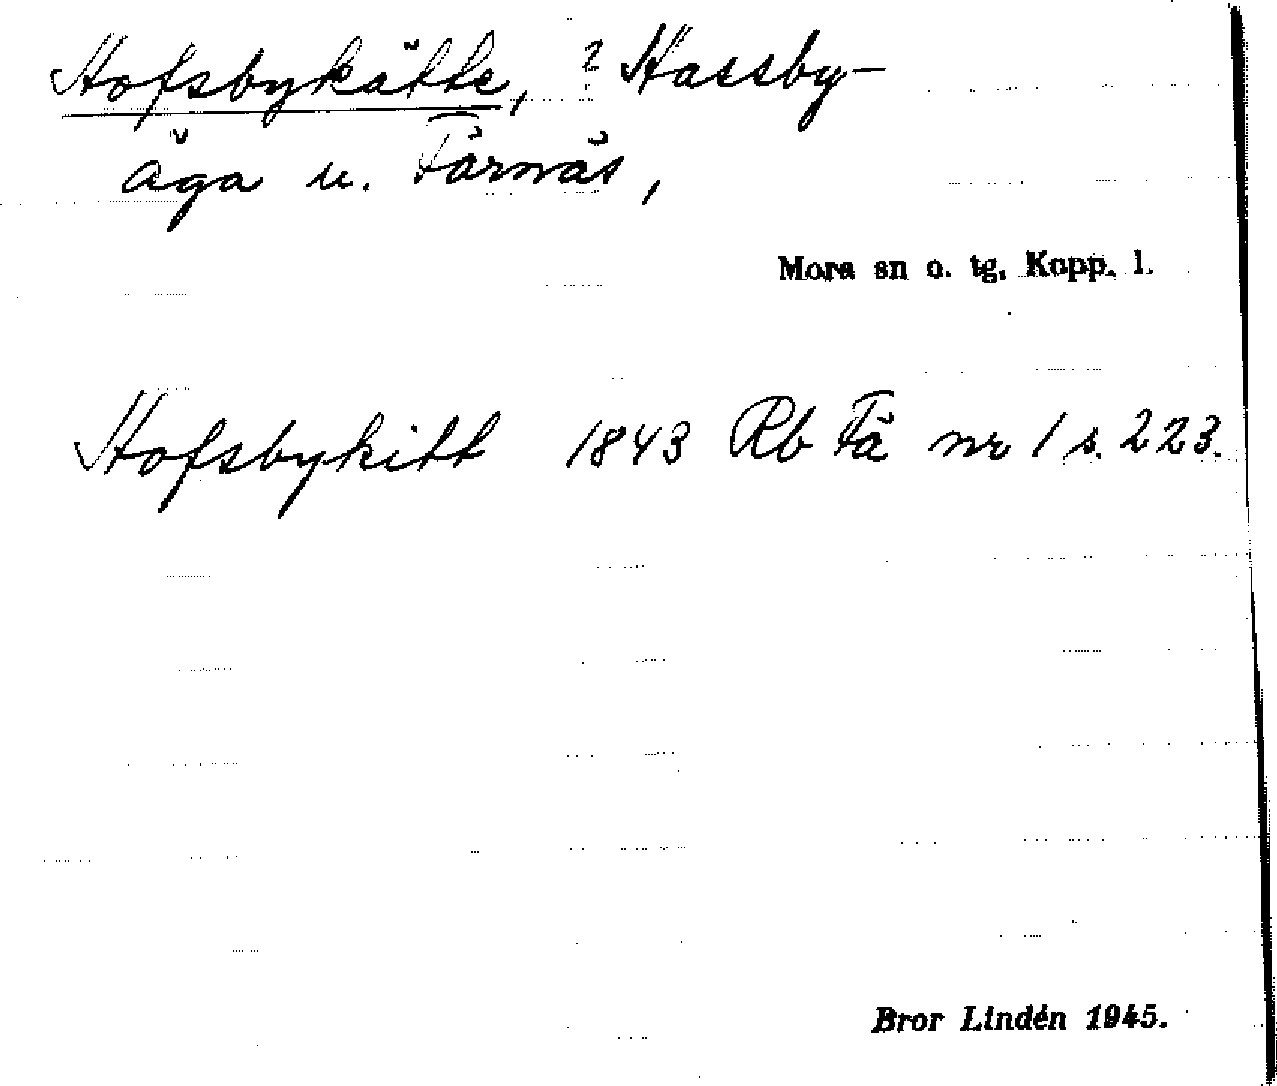 Hofsbykätte, ? Hassby-
äga u. Färnäs,
Mora sn o. tg. Kopp. l.
Hofsbykitt 1843 Rb Fä nr 1 s. 223.
Bror Lindén 1945.